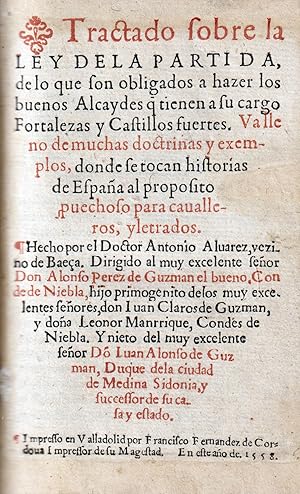 Tractado sobre la
LEY DE LA PARTIDA,
de lo que son obligados a hazer los
buenos Alcaydes q̃ tienen a su cargo
Fortalezas y Castillos fuertes. Va lle
no de muchas doctrinas y exem-
plos, donde se tocan historias
de España al proposito
puechoso para cavalle-
ros, y letrados.
¶ Hecho por el Doctor Antonio Aluarez, vezi-
no de Baeça. Dirigido al muy excelente señor
Don Alonso Perez de Guzman el bueno, Con
de de Niebla, hijo primogenito delos muy exce-
lentes señores, don Iuan Claros de Guzman,
y doña Leonor Manrrique, Condes de
Niebla. Y nieto del muy excelente
señor Dõ Iuan Alonso de Guz
man, Duque dela ciudad
de Medina Sidonia, y
successor de su ca-
sa y estado.
¶ Impresso en Valladolid por Francisco Fernandez de Cor-
doua Impressor de su Magestad. En este año de. 1558.